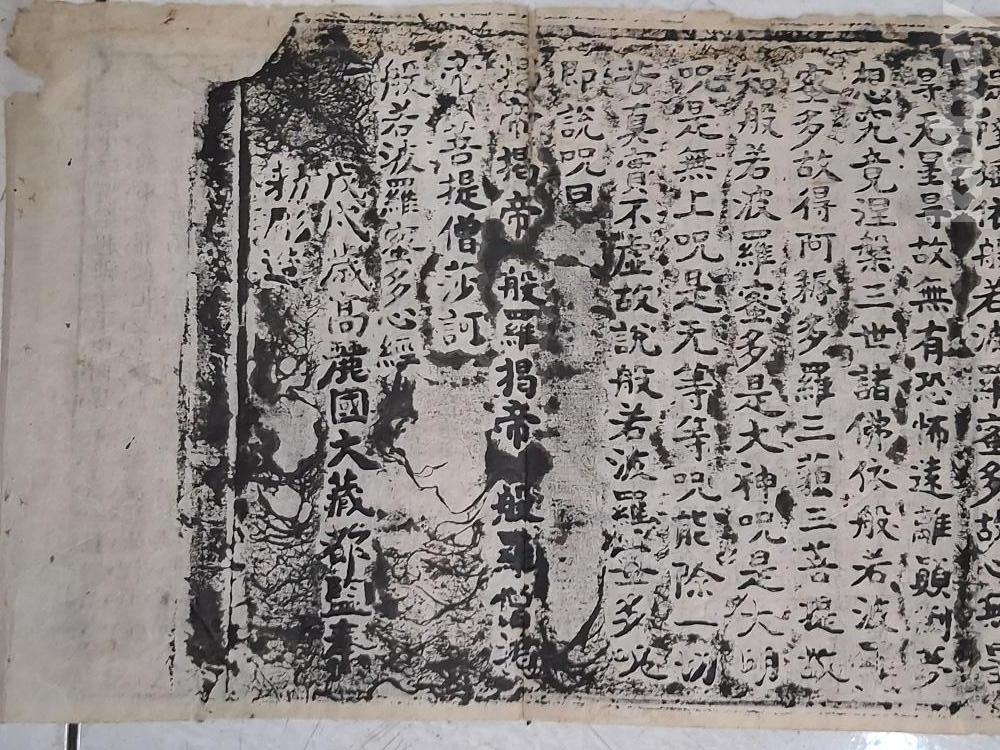 般若波羅蜜多故心無罣
导无罣导故無有恐怖遠離顛倒夢
想究竟涅槃三世諸佛依般若波羅
蜜多故得阿耨多羅三藐三菩提故
知般若波羅蜜多是大神呪是大明
呪是無上呪是无等等呪能除一切
苦真實不虛故說般若波羅蜜多呪
即說呪曰
揭帝揭帝 般羅揭帝 般羅僧揭
帝菩提僧莎訶
般若波羅蜜多心經
戊戌歲高麗國大藏都監奉
勅彫造